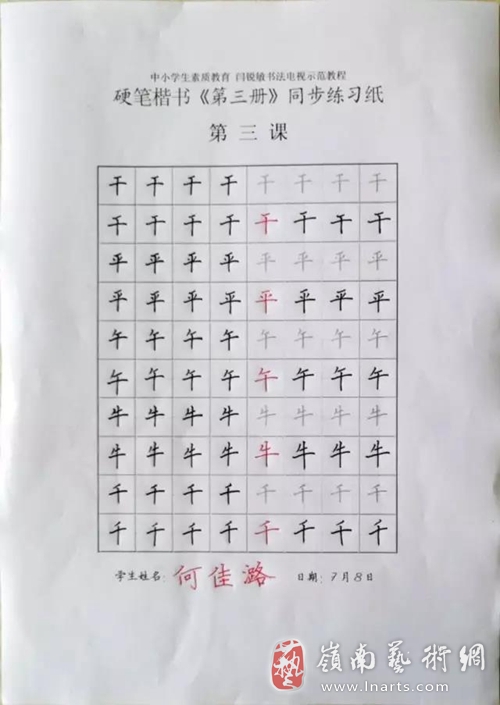 中小学生素质教育 闫锐敏书法电视示范教程
硬笔楷书《第三册》同步练习纸
第三课
干干干干干干干干
干干干干干干干干
平平平平平平平平
平平平平平平平平
午午午午午午午午
午午午午午午午午
牛牛牛牛牛牛牛牛
牛牛牛牛牛牛牛牛
千千千千千千千千
千千千千千千千千
学生姓名：何佳潞 日期：7月8日
藝 嶺南藝術網
www.lnarts.com